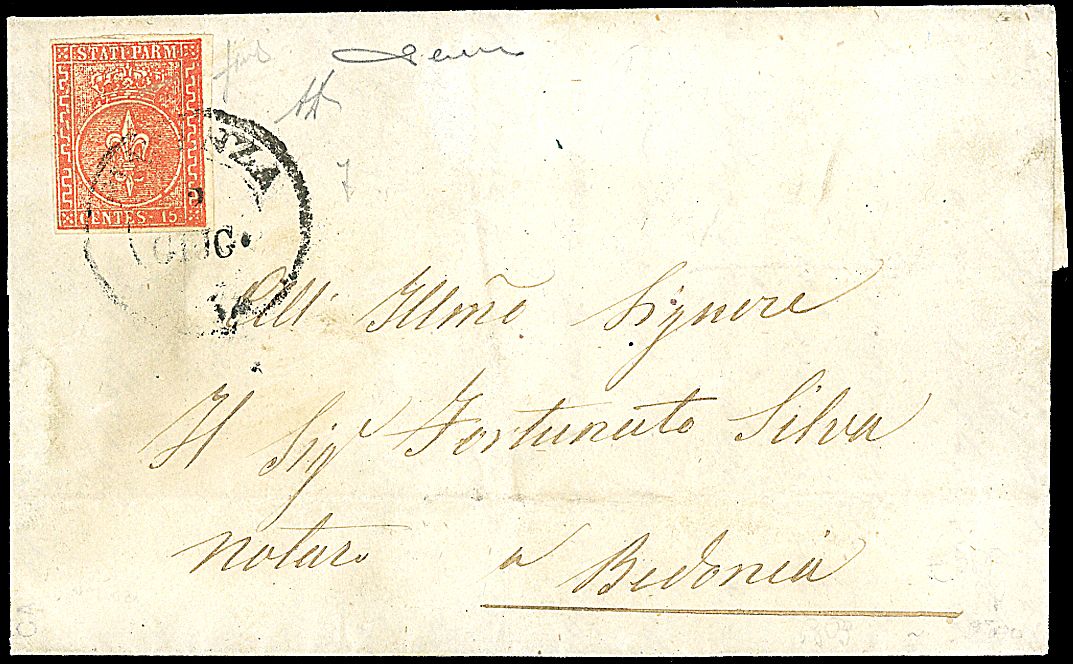 STATI PARM.
CENTES. 15
GIUG.
All' Illmo Signore
Il Sigr Fortunato Silva
notaro a Bedonia